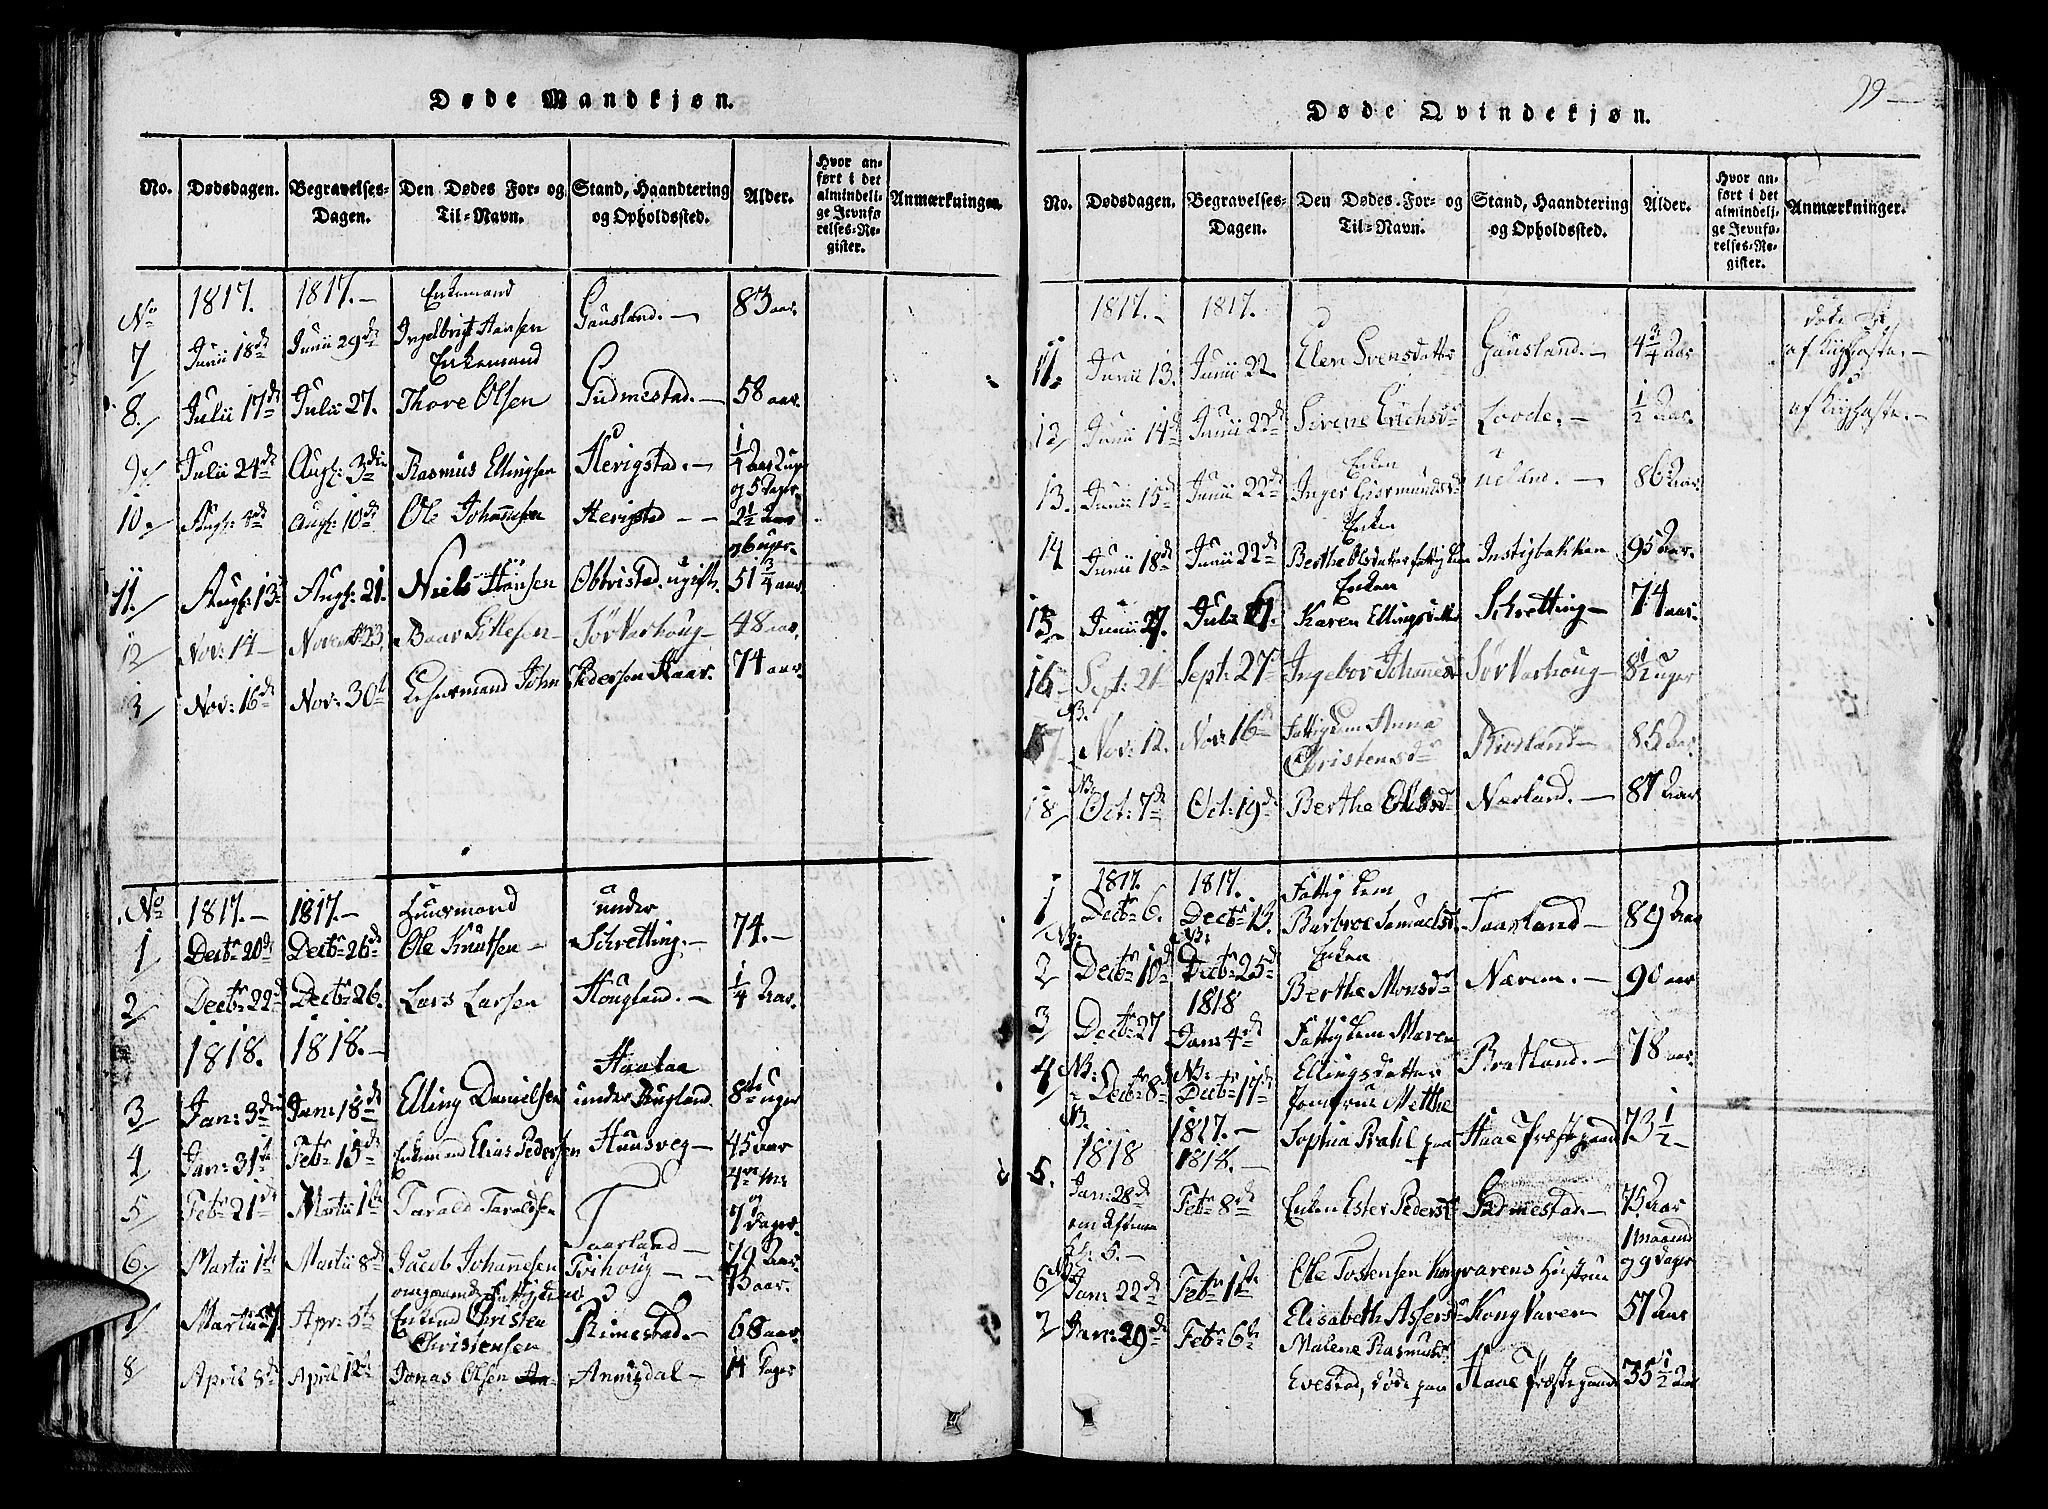 Døde Mandkjøn.
No. Dødsdagen. Begravelses-Dagen. Den Dødes For- og Til-Navn. Stand, Haandtering og Opholdssted. Alder. Hvor anført i det almindelige Jevnførelses-Register. Anmærkninger.
No 1817. 1817. — Enkemand
7 Junii 18de Junii 29de Ingelbrigt Hansen Gausland. — 83 aar.
Enkemand
8. Julii 17de Julii 27. Thore Olsen Gudmestad. — 58 aar.
9. Julii 24de Augs: 3die Rasmus Ellingsen Herigstad. — 1/4 Aar
og 5 Dager.
10. Augs: Augs: 10de Ole Johannesen Herigstad — — 2 1/2 Aar
og 6 uger.
11. Augs: 13de Augs: 21. Niels Hansen Obrestad. ugift. 51 3/4 aar.
12 Nov: 14 — Novemb 23. Sør Varhoug — 48 aar.
13 Nov: 16de Nov: 30te John Pedersen Haar. 74 aar.
No 1817. — 1817. — Huusmand under
1 Decbr 20de Decbr 26de Ole Knutsen — Schretting. — 74. —
2 Decbr 22de Decbr 26. Lars Larsen Hougland. — 1/4 Aar.
1818. 1818. —
3 Jan: 3die Jan: 18de Elling Danielsen under Fugland. 8te uger
4 Jan: 31te Febr 15de Enkemand Elias Pedersen Huusveg — 45 Aar
5 Febr 21de Martii 1ste Tarald Taraldsen Taarland — og 7 Dager
6. Martii 1ste Martii 8de Jacob Johannesen Tvihoug — — 79 Aar.
omgaaende Fattiglem
7 Martii Apr: 5te Christen Christensen Rimestad. — 68 aar.
8 April 8de April 12te Jonas Olsen Annisdal — 14 Dager
Døde Qvindekjøn.
99 —
No. Dødsdagen. Begravelses-Dagen. Den Dødes For- og Til-Navn. Stand, Haandtering og Opholdssted. Alder. Hvor anført i det almindelige Jevnførelses-Register. Anmærkninger.
1817. — 1817. døde
11. Junii 13. Junii 22 Elen Svensdatter Gausland. — 4 3/4 Aar af Kighoste. —
12 Junii 14de Junii 22de Sirene Erichsdr Loode. — 1/2 Aar. af Kighoste. —
Enken
13. Junii 15de Junii 22de Inger Giermundsdr Ueland. — 86 Aar.
Enken
14 Junii 18de Junii 22de Berthe Olsdatter fattiglem Instigbakken 95 Aar.
Enken
15 Junii 27. Julii Karen Ellingsdatter Schretting — 74 aar.
16 Sept: 21 Sept: 27 Ingebor Johannesdr Sør Varhoug — 8 1/2 uger
NB.
17 Nov: 12. Nov: 16de Fattiglem Anna Christensdr — 85 Aar.
NB.
18 Oct: 7de Oct: 19de Berthe Nærland. — Aar
1817. 1817. Fattiglem
1 Decbr 6. Decbr 13. Barbroe Samuelsdr Taarland — 89 Aar
NB. NB. Enken
2 Decbr 10de Decbr 25de Berthe Monsdr Nærem. — 90 aar
1818
3 Decbr 27 Jan: 4de Fattiglem Maren Ellingsdatter Bratland. — 78 aar
4 NB: Decbr 8de NB: Decbr 17de Jomfrue Metthe
NB. 1817. — Sophia Prahl paa Haae Præstegaard 73 1/2
1818 1818. —
5. Jan: 28de Febr 8de Enken Ester Pedersdr Gudmestad. — 75 Aar
1 maaned og 9 Dager
6 Jan: 22de Febr 1ste Ole Tostensen Kongvarens Hustrue
Elisabeth Assersdr Kong Varen 57 Aar
7 Jan: 29de Febr 6te Malene Rasmusdr
Evestad, døde paa Haae Præstegaard 35 1/2 Aar